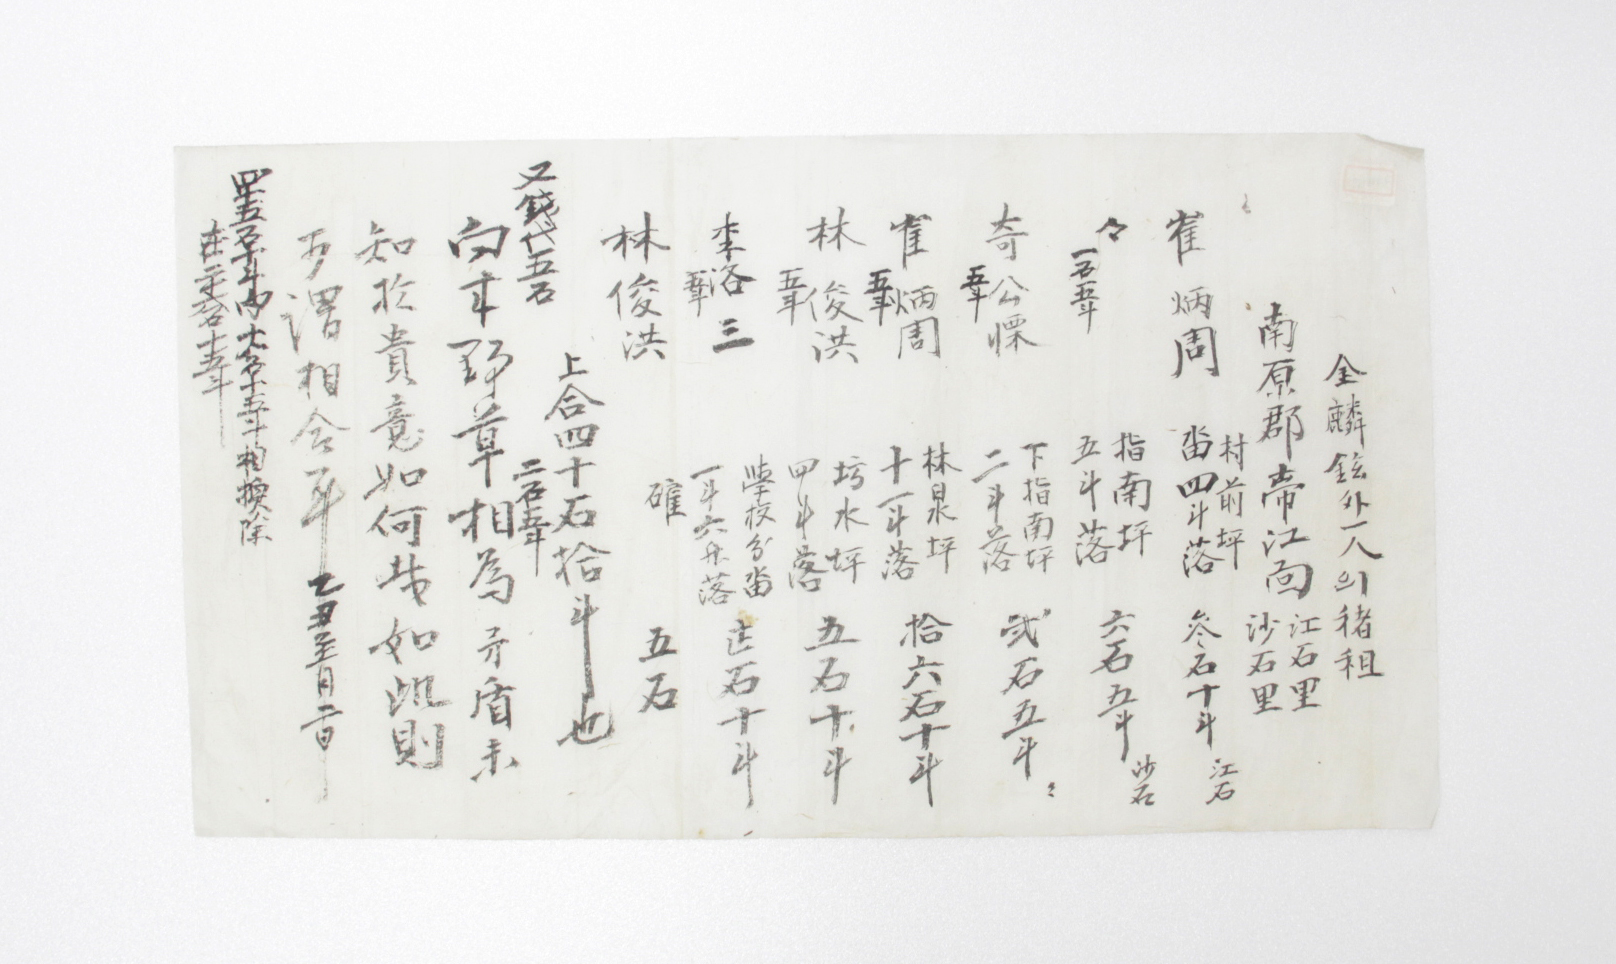 金麟鉉外一人의 猪租
南原郡帝江面 江石里
沙石里
崔炳周 村前坪
畓四斗落 參石十斗 江石
々 指南坪
五斗落 六石五斗 沙石
一石五斗
奇公慄 下指南坪
二斗落 弐石五斗 〻
五斗
崔炳周 林泉坪
十一斗落 拾六石十斗
五斗
林俊洪 坊水坪
四斗落 五石十斗
五斗
李洛三 學校分畓
一斗六升落 石十斗
五斗
林俊洪 確 五石
上合四十石拾斗也
二石五斗
又錢代五石
向來野草相為矛盾未
知於貴意如何哉如此則
可謂相合耳 乙丑至月二日
五斗內 相換除
十五斗